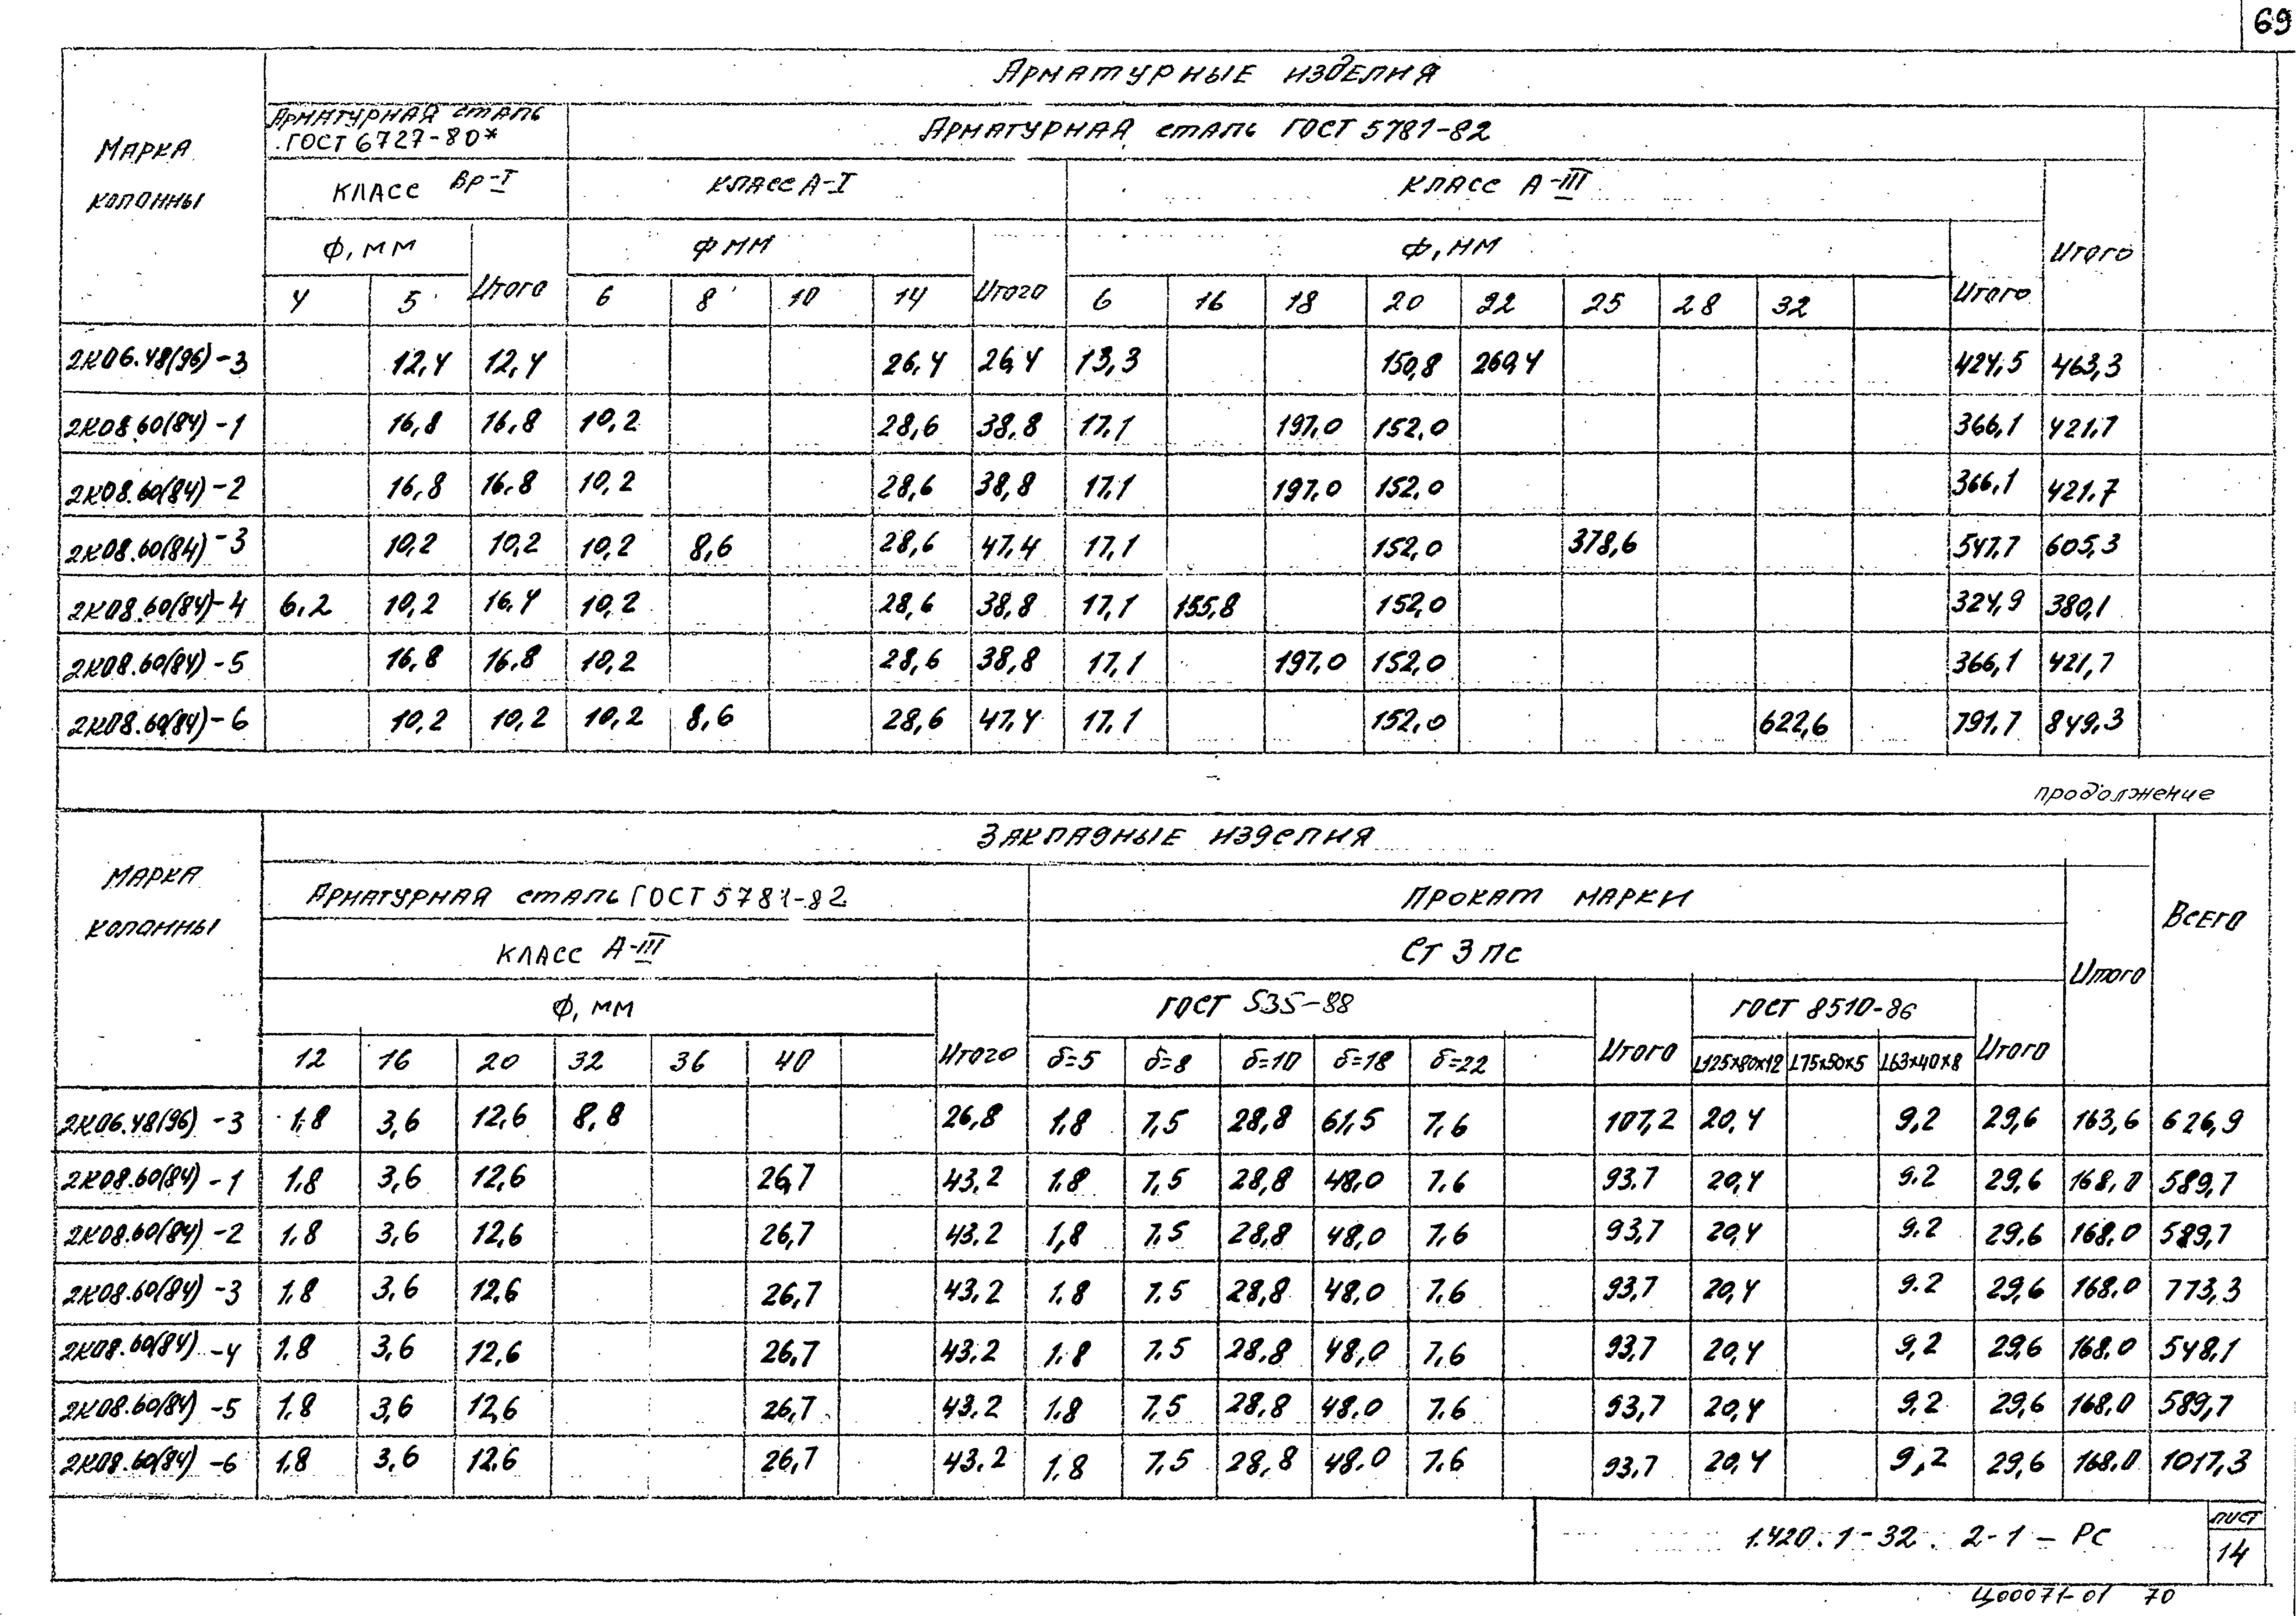 69
Арматурные изделия
Марка колонны
Арматурная сталь ГОСТ 6727-80*
Арматурная сталь ГОСТ 5781-82
Класс Вр-I
Класс А-I
Класс А-III
Ф, мм Итого Ф мм Итого Ф, мм Итого Итого
4 5 6 8 10 14 6 16 18 20 22 25 28 32
2К06.48(96)-3 12,4 12,4 26,4 26,4 13,3 150,8 260,4 424,5 463,3
2К08.60(84)-1 16,8 16,8 10,2 28,6 38,8 17,1 197,0 152,0 366,1 421,7
2К08.60(84)-2 16,8 16,8 10,2 28,6 38,8 17,1 197,0 152,0 366,1 421,7
2К08.60(84)-3 10,2 10,2 10,2 8,6 28,6 47,4 17,1 152,0 378,6 547,7 605,3
2К08.60(84)-4 6,2 10,2 16,4 10,2 28,6 38,8 17,1 155,8 152,0 324,9 380,1
2К08.60(84)-5 16,8 16,8 10,2 28,6 38,8 17,1 197,0 152,0 366,1 421,7
2К08.60(84)-6 10,2 10,2 10,2 8,6 28,6 47,4 17,1 152,0 622,6 791,7 849,3
продолжение
Закладные изделия
Марка колонны
Арматурная сталь ГОСТ 5781-82
Прокат марки
Всего
Класс А-III
Ст 3 пс
Итого
Ф, мм
ГОСТ 535-88
ГОСТ 8510-86
12 16 20 32 36 40 Итого δ=5 δ=8 δ=10 δ=18 δ=22 Итого L125х80х12 L75х50х5 L63х40х8 Итого
2К06.48(96)-3 1,8 3,6 12,6 8,8 26,8 1,8 7,5 28,8 61,5 7,6 107,2 20,4 9,2 29,6 163,6 626,9
2К08.60(84)-1 1,8 3,6 12,6 26,7 43,2 1,8 7,5 28,8 48,0 7,6 93,7 20,4 9,2 29,6 168,0 589,7
2К08.60(84)-2 1,8 3,6 12,6 26,7 43,2 1,8 7,5 28,8 48,0 7,6 93,7 20,4 9,2 29,6 168,0 589,7
2К08.60(84)-3 1,8 3,6 12,6 26,7 43,2 1,8 7,5 28,8 48,0 7,6 93,7 20,4 9,2 29,6 168,0 773,3
2К08.60(84)-4 1,8 3,6 12,6 26,7 43,2 1,8 7,5 28,8 48,0 7,6 93,7 20,4 9,2 29,6 168,0 548,1
2К08.60(84)-5 1,8 3,6 12,6 26,7 43,2 1,8 7,5 28,8 48,0 7,6 93,7 20,4 9,2 29,6 168,0 589,7
2К08.60(84)-6 1,8 3,6 12,6 26,7 43,2 1,8 7,5 28,8 48,0 7,6 93,7 20,4 9,2 29,6 168,0 1017,3
1.420.1-32. 2-1-РС
лист
14
Ц00071-01 70